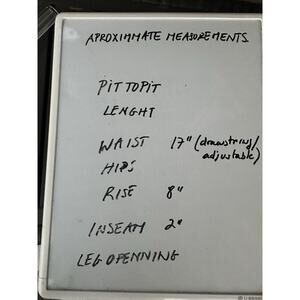 APROXIMMATE MEASUREMENTS
PIT TO PIT
LENGHT
WAIST 17" (drawstring/
adjustable)
HIPS
RISE 8"
INSEAM 2"
LEG OPENNING